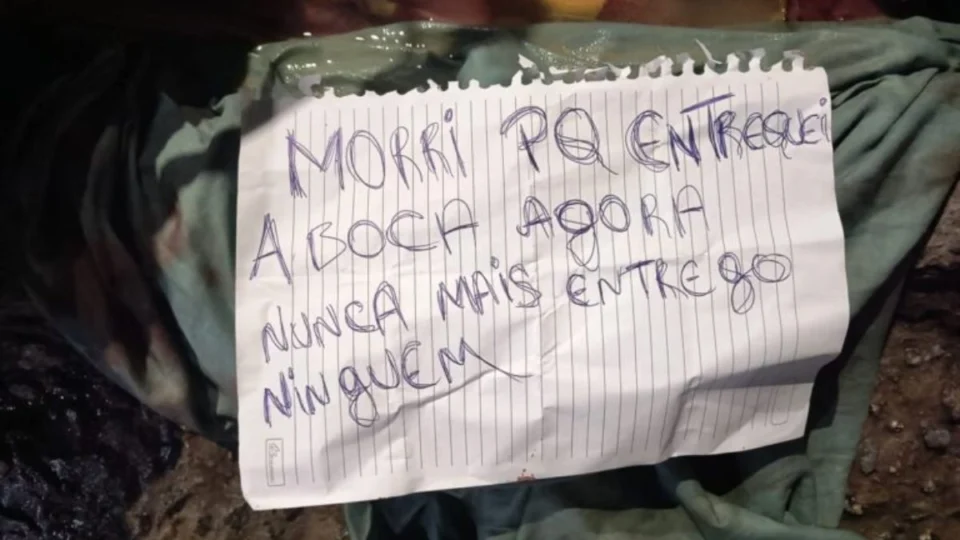 MORRi PQ ENTREGUEi
A BOCA AGORA
NUNCA MAiS ENTREgO
NiNgUEM